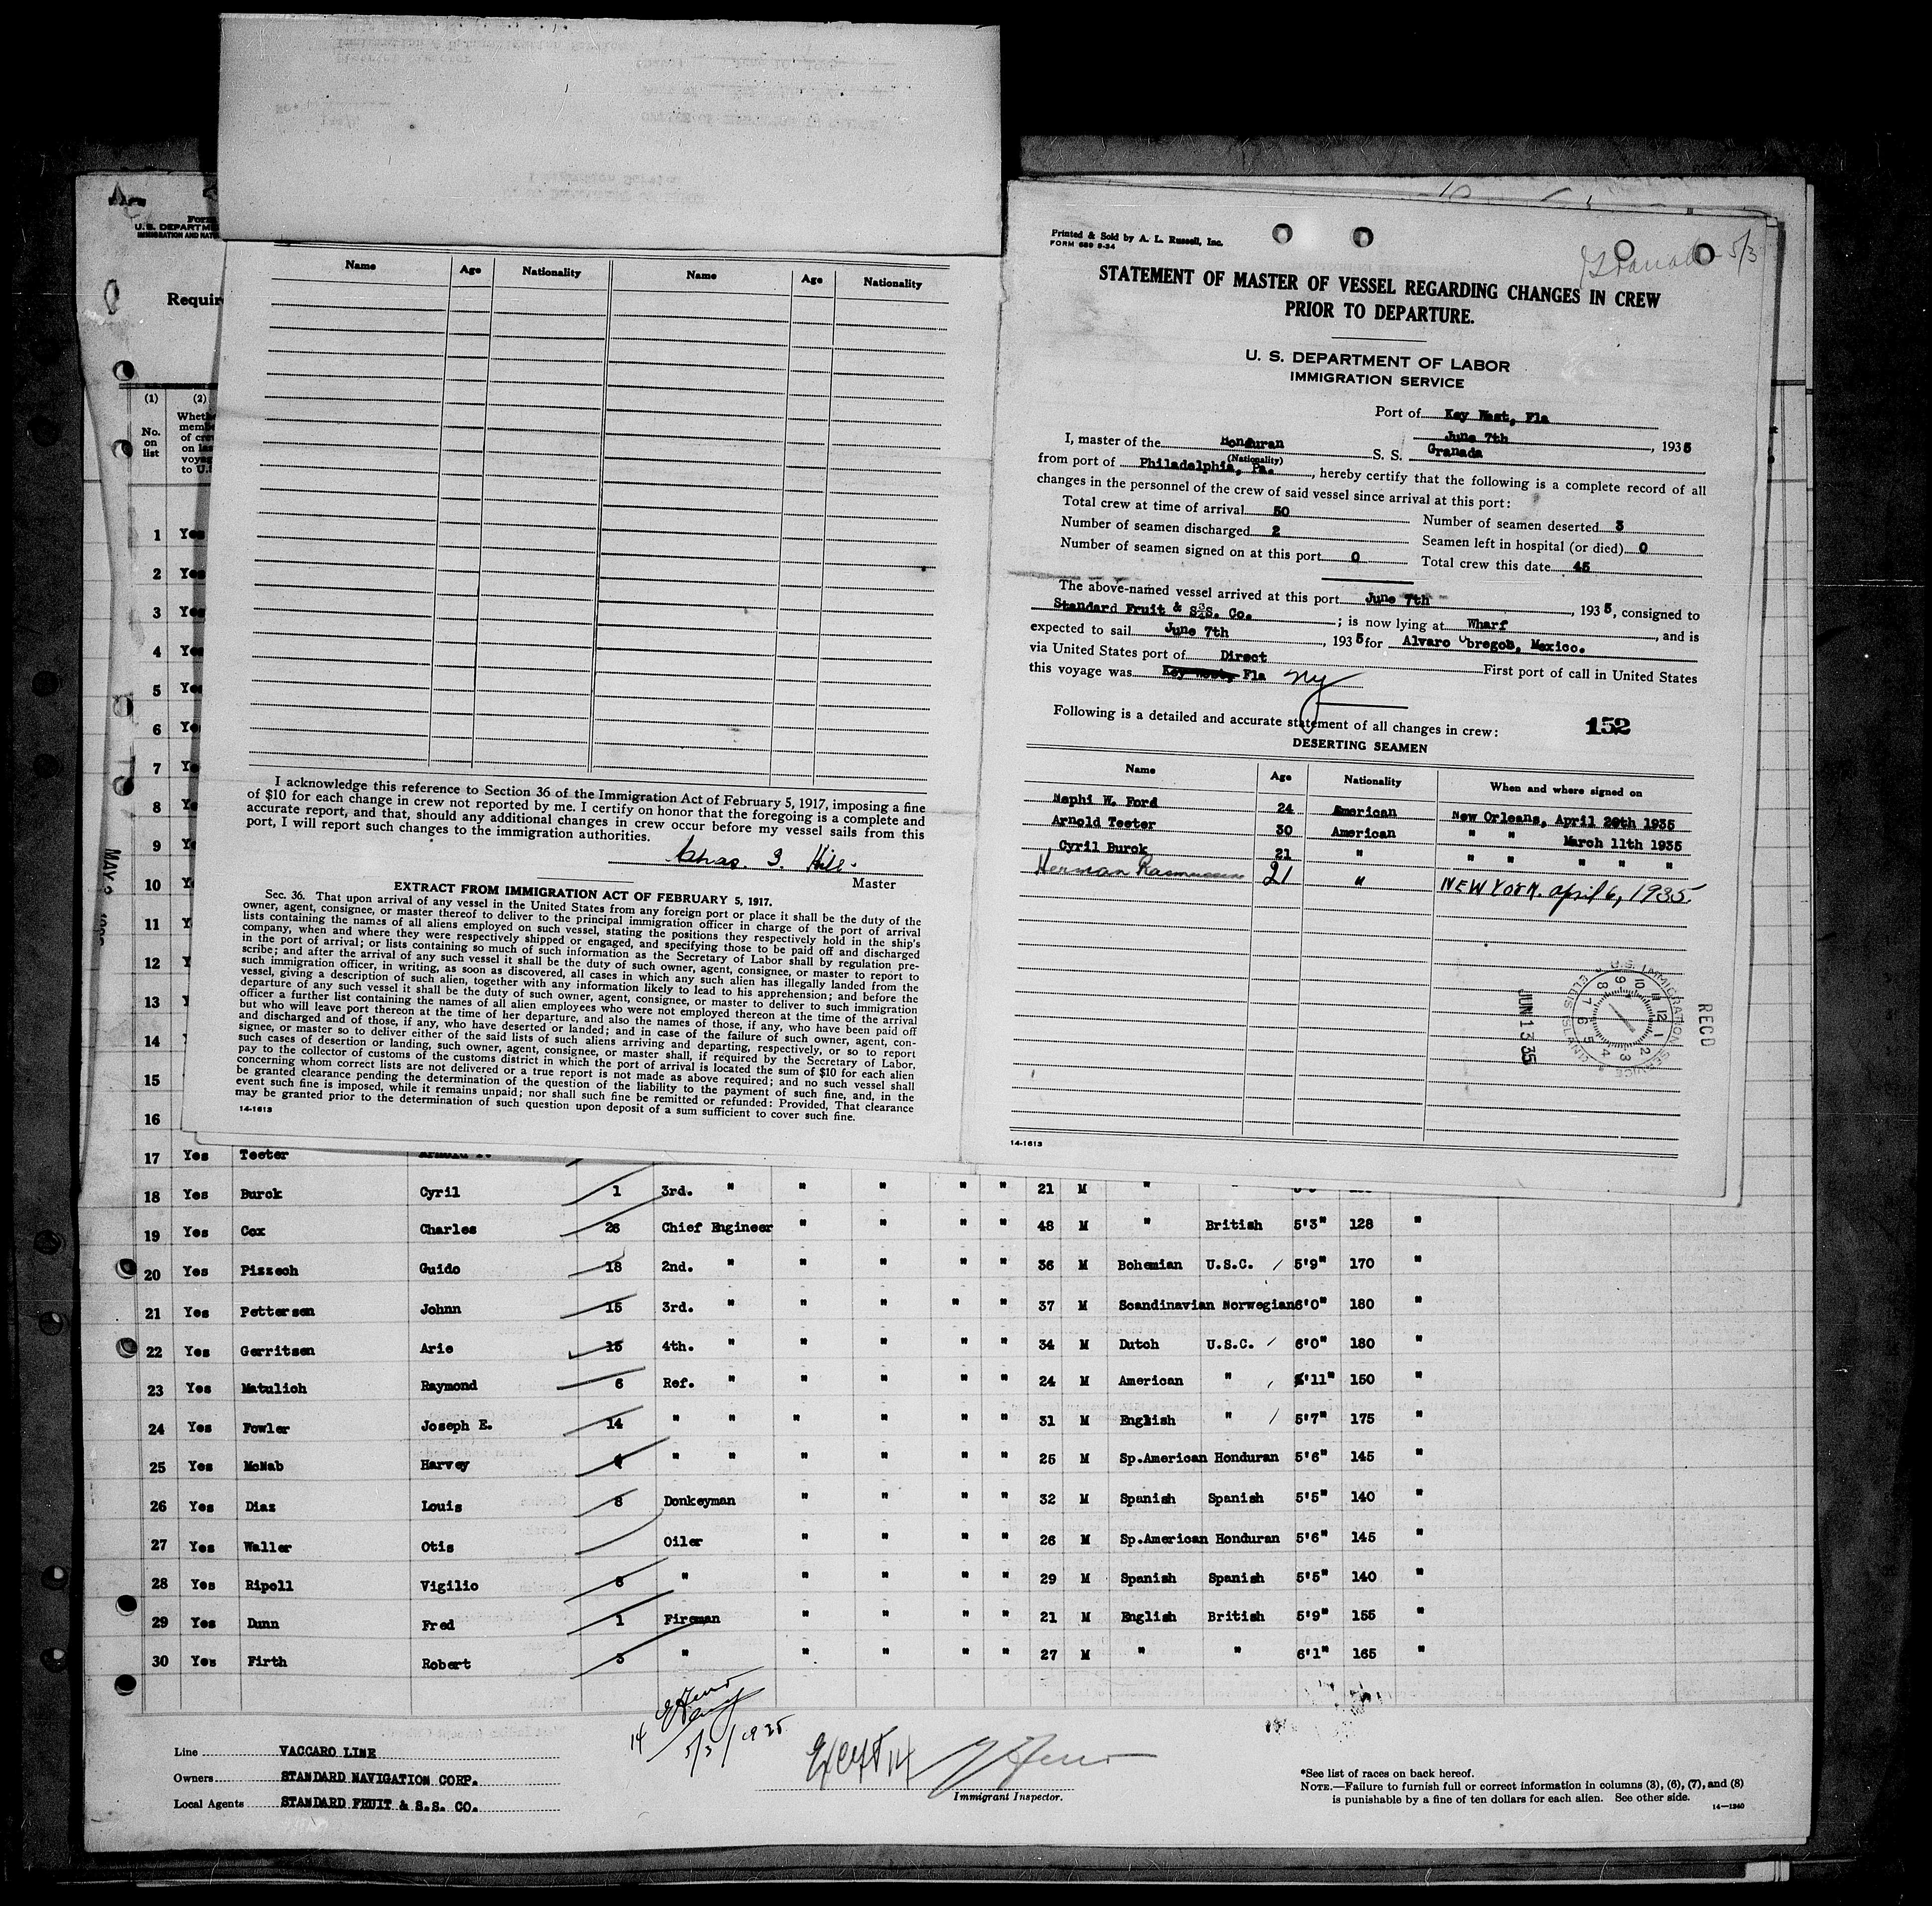 Form
U. S. DEPARTM
IMMIGRATION AND NAT
Requir
(1) (2)
No. on list
Wheth
memb
of cre
on las
voyag
to U.
MAY 3
Name Age Nationality Name Age Nationality
I acknowledge this reference to Section 36 of the Immigration Act of February 5, 1917, imposing a fine
of $10 for each change in crew not reported by me. I certify on honor that the foregoing is a complete and
accurate report, and that, should any additional changes in crew occur before my vessel sails from this
port, I will report such changes to the immigration authorities.
Chas. Hill
Master
EXTRACT FROM IMMIGRATION ACT OF FEBRUARY 5, 1917.
Sec. 36. That upon arrival of any vessel in the United States from any foreign port or place it shall be the duty of the
owner, agent, consignee, or master thereof to deliver to the principal immigration officer in charge of the port of arrival
lists containing the names of all aliens employed on such vessel, stating the positions they respectively hold in the ship's
company, when and where they were respectively shipped or engaged, and specifying those to be paid off and discharged
in the port of arrival; or lists containing so much of such information as the Secretary of Labor shall by regulation pre-
scribe; and after the arrival of any such vessel it shall be the duty of such owner, agent, consignee, or master to report to
such immigration officer, in writing, as soon as discovered, all cases in which any such alien has illegally landed from the
vessel, giving a description of such alien, together with any information likely to lead to his apprehension; and before the
departure of any such vessel it shall be the duty of such owner, agent, consignee, or master to deliver to such immigration
officer a further list containing the names of all alien employees who were not employed thereon at the time of the arrival
but who will leave port thereon at the time of her departure, and also the names of those, if any, who have been paid off
and discharged and of those, if any, who have deserted or landed; and in case of the failure of such owner, agent, con-
signee, or master so to deliver either of the said lists of such aliens arriving and departing, respectively, or so to report
such cases of desertion or landing, such owner, agent, consignee, or master shall, if required by the Secretary of Labor,
pay to the collector of customs of the customs district in which the port of arrival is located the sum of $10 for each alien
concerning whom correct lists are not delivered or a true report is not made as above required; and no such vessel shall
be granted clearance pending the determination of the question of the liability to the payment of such fine, and, in the
event such fine is imposed, while it remains unpaid; nor shall such fine be remitted or refunded: Provided, That clearance
may be granted prior to the determination of such question upon deposit of a sum sufficient to cover such fine.
14-1613
Printed & Sold by A. L. Russell, Inc.
FORM 689 9-34
5/3
STATEMENT OF MASTER OF VESSEL REGARDING CHANGES IN CREW
PRIOR TO DEPARTURE.
U. S. DEPARTMENT OF LABOR
IMMIGRATION SERVICE
Port of Key West, Fla
June 7th, 1935
I, master of the Honduran S. S. Granada
(Nationality)
from port of Philadelphia, Pa., hereby certify that the following is a complete record of all
changes in the personnel of the crew of said vessel since arrival at this port:
Total crew at time of arrival 50 Number of seamen deserted 3
Number of seamen discharged 2 Seamen left in hospital (or died) 0
Number of seamen signed on at this port 0 Total crew this date 45
The above-named vessel arrived at this port June 7th, 1935, consigned to
Standard Fruit & S.S. Co. ; is now lying at Wharf, and is
expected to sail June 7th, 1935 for Alvaro Obregon, Mexico.
via United States port of Direct First port of call in United States
this voyage was Key West, Fla NY
Following is a detailed and accurate statement of all changes in crew: 152
DESERTING SEAMEN
Name Age Nationality When and where signed on
Nephi W. Ford 24 American New Orleans, April 29th 1935
Arnold Teeter 30 American " " March 11th 1935
Cyril Burok 21 " " " " " "
Herman Rasmussen 21 " NEW YORK. April 6, 1935.
REC'D
U.S. IMMIGRATION SERVICE ELLIS ISLAND
JUN 13 35
14-1613
1 Yes
2 Yes
3 Yes
4 Yes
5 Yes
6 Yes
7 Ye
8 Ye
9 Ye
10 Y
11 Y
12 Y
13 Y
14
15
16
17 Yes Teeter Arnold
18 Yes Burok Cyril 1 3rd. " " " " " 21 M "
19 Yes Cox Charles 26 Chief Engineer " " " " 48 M " British 5'3" 128 "
20 Yes Pizzech Guido 18 2nd. " " " " " 36 M Bohemian U.S.C. 5'9" 170 "
21 Yes Pettersen Johnn 15 3rd. " " " " " 37 M Scandinavian Norwegian 6'0" 180 "
22 Yes Gerritsen Arie 15 4th. " " " " " 34 M Dutch U.S.C. 6'0" 180 "
23 Yes Matulich Raymond 6 Ref. " " " " " 24 M American " 5'11" 150 "
24 Yes Fowler Joseph E. 14 " " " " " " 31 M English " 5'7" 175 "
25 Yes McNab Harvey " " " " " " 25 M Sp.American Honduran 5'6" 145 "
26 Yes Diaz Louis 8 Donkeyman " " " " 32 M Spanish Spanish 5'5" 140 "
27 Yes Waller Otis Oiler " " " " 26 M Sp.American Honduran 5'6" 145 "
28 Yes Ripoll Vigilio 6 " " " " " 29 M Spanish Spanish 5'5" 140 "
29 Yes Dunn Fred 1 Fireman " " " " 21 M English British 5'9" 155 "
30 Yes Firth Robert 3 " " " " " 27 M " " 6'1" 165 "
14 5/3/1935
Except 14
Immigrant Inspector.
Line VACCARO LINE
Owners STANDARD NAVIGATION CORP.
Local Agents STANDARD FRUIT & S.S. CO.
*See list of races on back hereof.
NOTE.—Failure to furnish full or correct information in columns (3), (6), (7), and (8)
is punishable by a fine of ten dollars for each alien. See other side.
14-1240